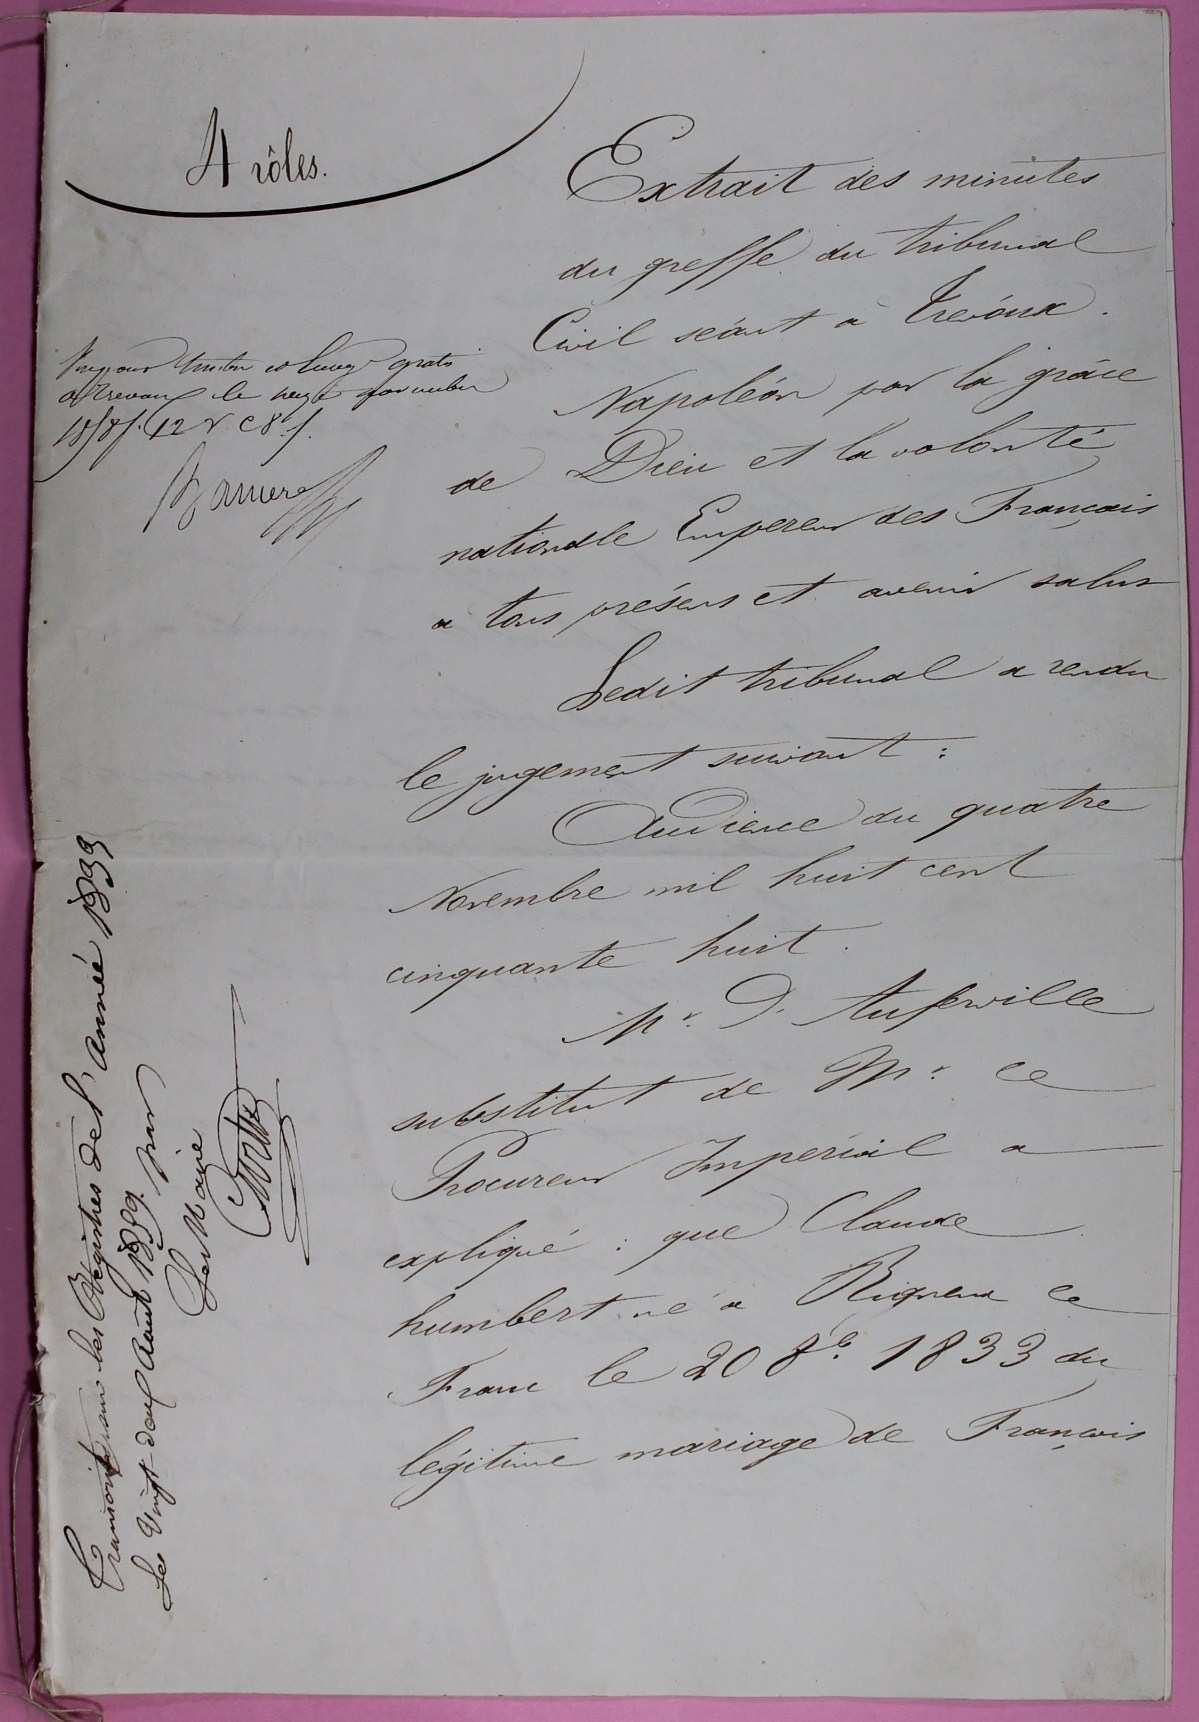 4 rôles.
Extrait des minutes
du greffe du tribunal
Civil séant à Trévoux.
Napoléon par la grâce
de Dieu et la volonté
nationale Empereur des Français
a tous présens et avenir salut
Ledit tribunal a rendu
le jugement suivant :
Audience du quatre
Novembre mil huit cent
cinquante huit.
Mr. D.
substitut de Mr. le
Procureur Impérial a
expliqué : que Claude
humbert né a Rigneux le
Franc le 20 8e. 1833 du
légitime mariage de François
Vu pour timbre et gratis
a Trevoux le novembre
Transcrit dans les Régistres de l'année 1833
Le Vingt-deux Août 1859. par
Le Maire